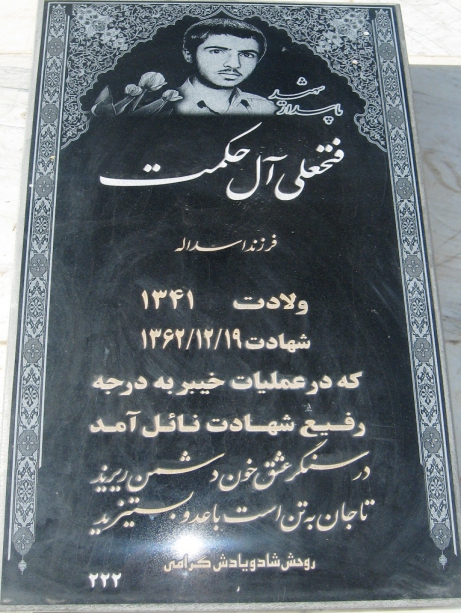 شهید
پاسدار
فتحعلی آل حکمت
فرزند اسداله
ولادت ۱۳۴۱
شهادت ۱۳۶۲/۱۲/۱۹
که در عملیات خیبر به درجه
رفیع شهادت نائل آمد
در سنگر عشق خون دشمن ریزید
تا جان به تن است با عدو بستیزید
روحش شاد و یادش گرامی
۲۲۲